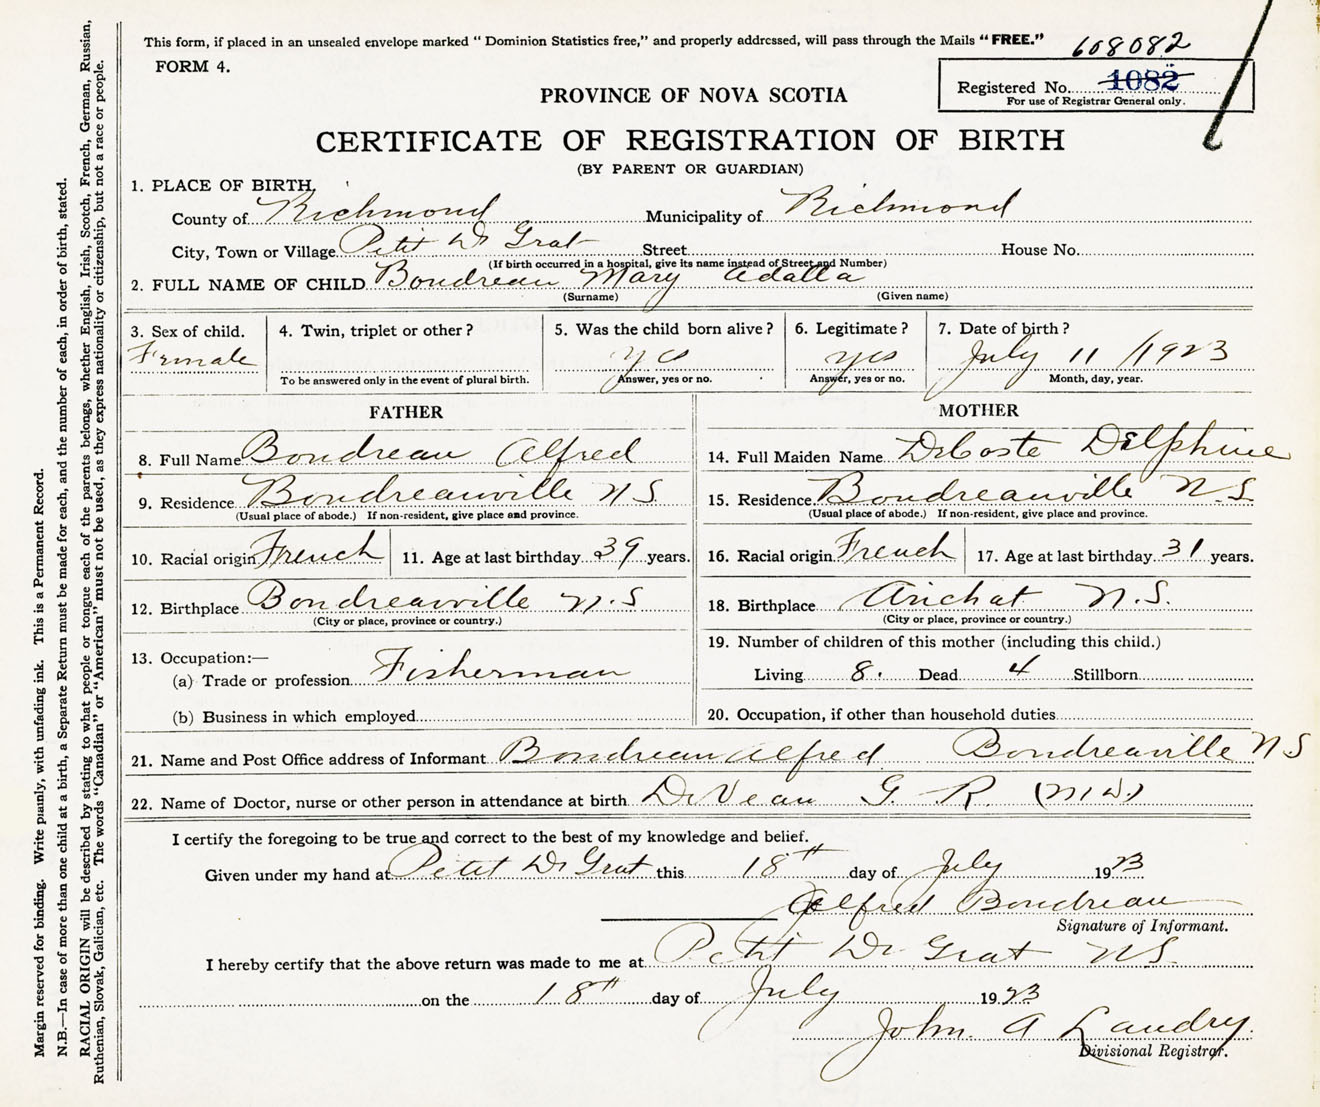 This form, if placed in an unsealed envelope marked "Dominion Statistics free," and properly addressed, will pass through the Mails "FREE."
608082
FORM 4.
Registered No. 1082
For use of Registrar General only.
PROVINCE OF NOVA SCOTIA
CERTIFICATE OF REGISTRATION OF BIRTH
(BY PARENT OR GUARDIAN)
1. PLACE OF BIRTH.
County of Richmond Municipality of Richmond
City, Town or Village Petit De Grat Street House No.
(If birth occurred in a hospital, give its name instead of Street and Number)
2. FULL NAME OF CHILD Boudreau Mary Adalla
(Surname) (Given name)
3. Sex of child. 4. Twin, triplet or other? 5. Was the child born alive? 6. Legitimate? 7. Date of birth?
Female yes yes July 11 /1923
To be answered only in the event of plural birth. Answer, yes or no. Answer, yes or no. Month, day, year.
FATHER MOTHER
8. Full Name Boudreau Alfred 14. Full Maiden Name DeCoste Delphine
9. Residence Boudreauville N S. 15. Residence Boudreauville N. S.
(Usual place of abode.) If non-resident, give place and province. (Usual place of abode.) If non-resident, give place and province.
10. Racial origin French 11. Age at last birthday 39 years. 16. Racial origin French 17. Age at last birthday 31 years.
12. Birthplace Boudreauville N.S 18. Birthplace Arichat N.S.
(City or place, province or country.) (City or place, province or country.)
19. Number of children of this mother (including this child.)
13. Occupation:—
(a) Trade or profession Fisherman Living 8. Dead 4 Stillborn
(b) Business in which employed 20. Occupation, if other than household duties
21. Name and Post Office address of Informant Boudreau Alfred Boudreauville N S
22. Name of Doctor, nurse or other person in attendance at birth DeVeau G. R. (M.W.)
I certify the foregoing to be true and correct to the best of my knowledge and belief.
Given under my hand at Petit De Grat this 18th day of July 1923
Alfred Boudreau
Signature of Informant.
I hereby certify that the above return was made to me at Petit De Grat NS.
on the 18th day of July 1923
John. A Landry.
Divisional Registrar.
Margin reserved for binding. Write plainly, with unfading ink. This is a Permanent Record.
N.B.—In case of more than one child at a birth, a Separate Return must be made for each, and the number of each, in order of birth, stated.
RACIAL ORIGIN will be described by stating to what people or tongue each of the parents belongs, whether English, Irish, Scotch, French, German, Russian,
Ruthenian, Slovak, Galician, etc. The words "Canadian" or "American" must not be used, as they express nationality or citizenship, but not a race or people.